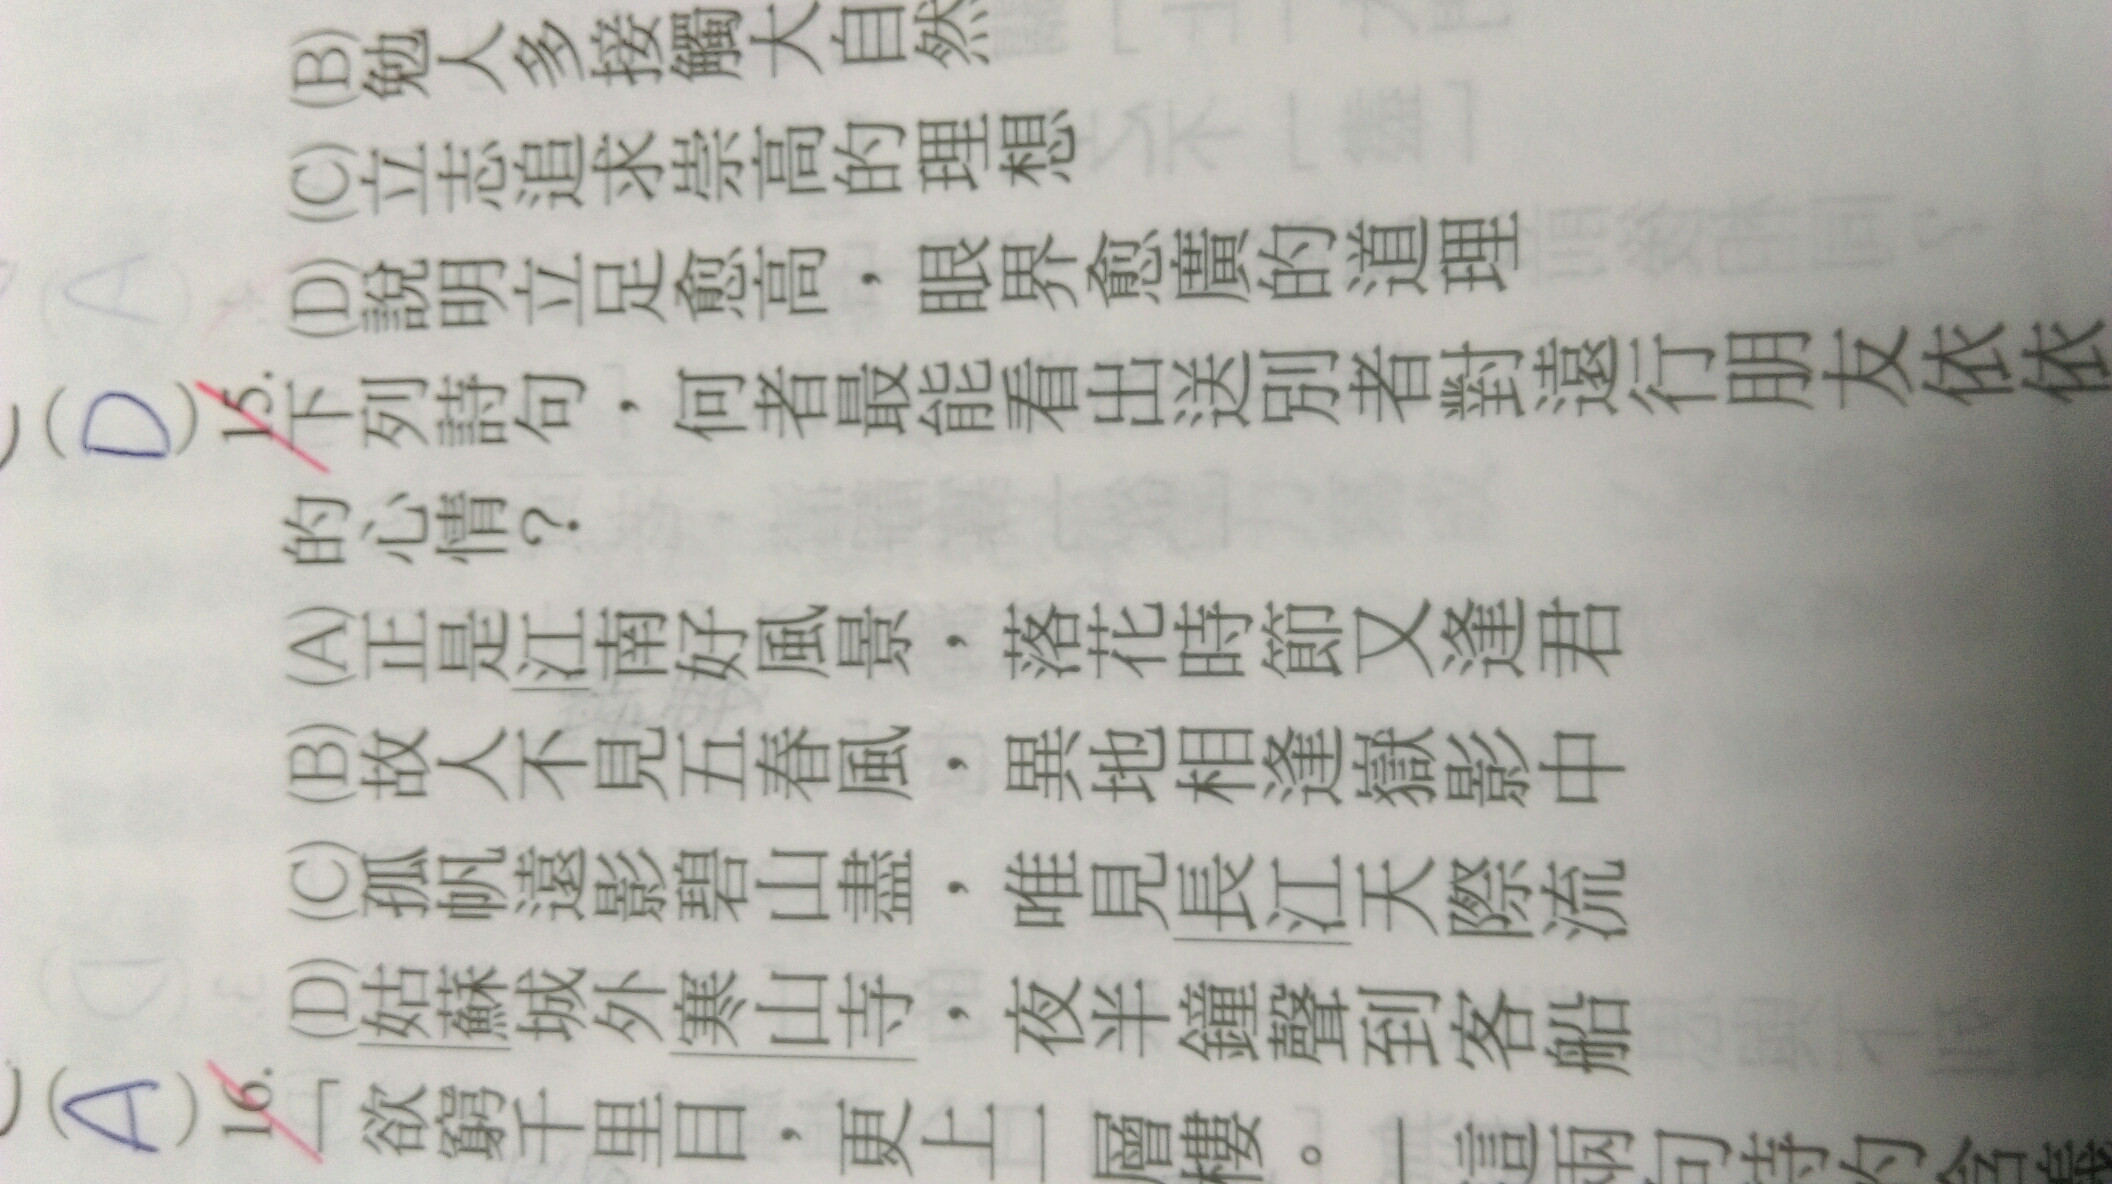 (B)勉人多接觸大自然
(C)立志追求崇高的理想
(D)說明立足愈高，眼界愈廣的道理
(D)15.下列詩句，何者最能看出送別者對遠行朋友依依
的心情？
(A)正是江南好風景，落花時節又逢君
(B)故人不見五春風，異地相逢嶽影中
(C)孤帆遠影碧山盡，唯見長江天際流
(D)姑蘇城外寒山寺，夜半鐘聲到客船
(A)16.「欲窮千里目，更上一層樓。」這兩句詩的含義